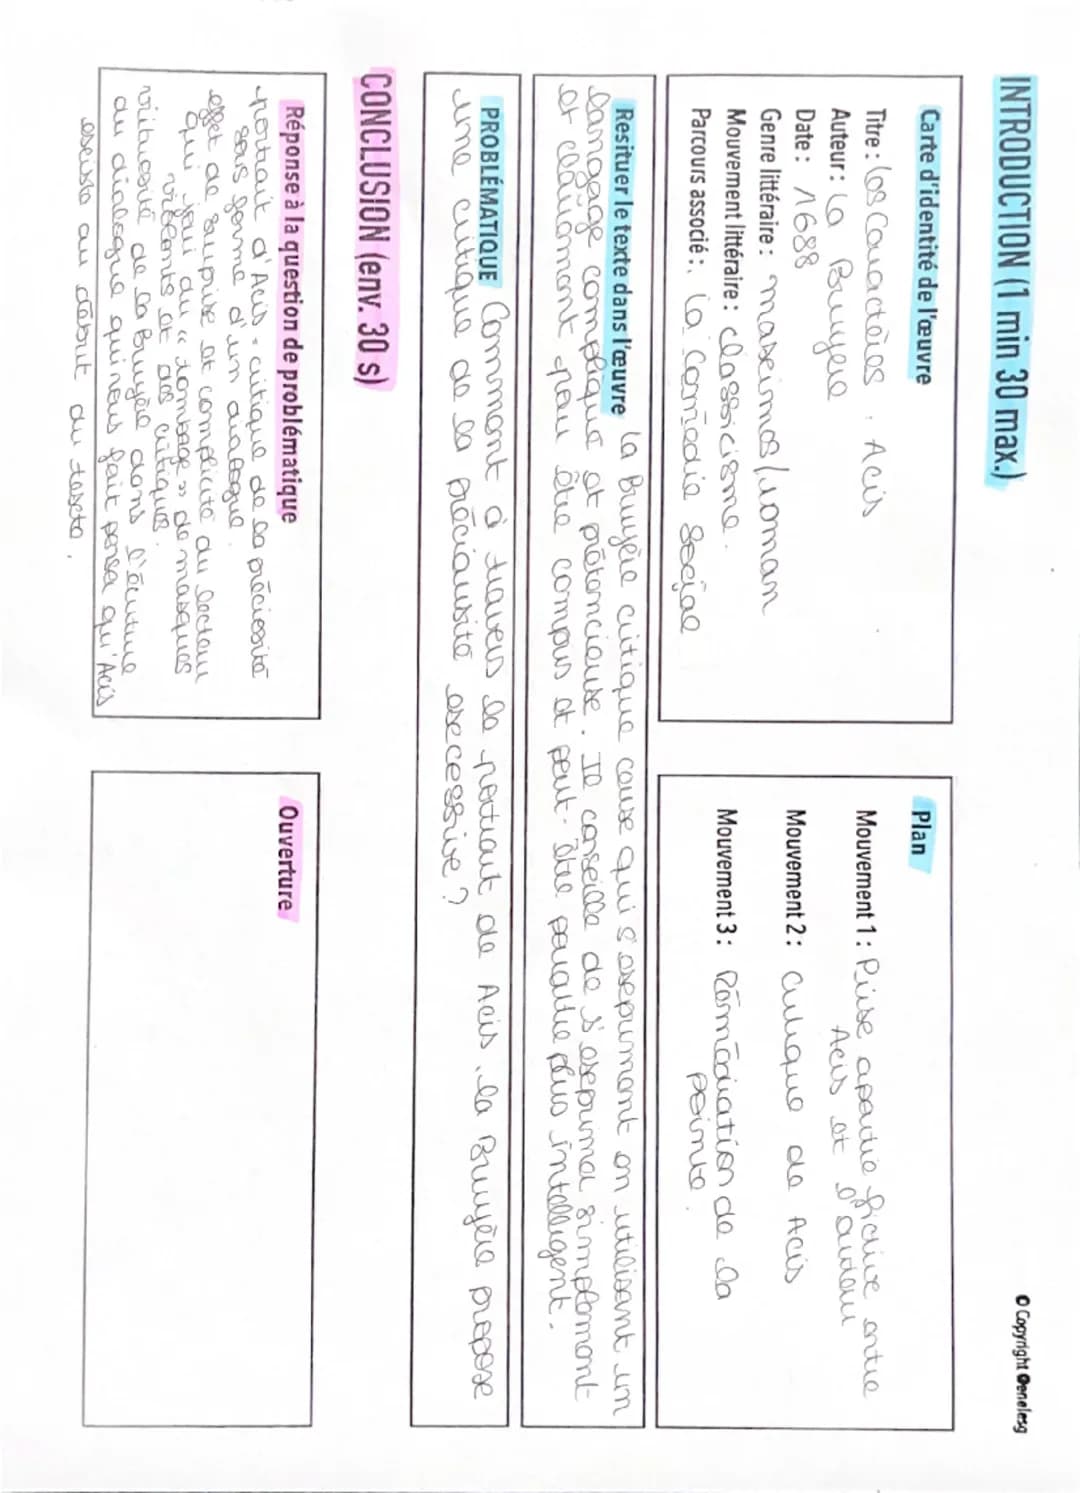 INTRODUCTION (1 min 30 max.)
© Copyright @enelesg
Carte d'identité de l'œuvre
Titre : Les Caractères . Acis
Auteur : La Bruyère
Date : 1688
Genre littéraire : maximes / roman
Mouvement littéraire : classicisme .
Parcours associé : La Comédie sociale
Plan
Mouvement 1 : Prise apartie fictive entre
Acis et l'auteur
Mouvement 2 : Critique de Acis
Mouvement 3 : Remédiation de la
pointe .
Resituer le texte dans l'œuvre La Bruyère critique ceux qui s'expriment en utilisant un
langage compliqué et prétencieuse . Il conseille de s'exprimer simplement
et clairement pour être compris et peut-être paraître plus intelligent .
PROBLÉMATIQUE Comment à travers le portrait de Acis , la Bruyère propose
une critique de la préciausité excessive ?
CONCLUSION (env. 30 s)
Réponse à la question de problématique
portrait d'Acis = critique de la préciosité
sous forme d'un dialogue .
effet de surprise et complicité du lecteur
qui joui du « tombage » de masques
violents et des critiques .
virtuosité de la Bruyère dans l'écriture
du dialogue qui nous fait penser qu'Acis
existe au début du texte .
Ouverture